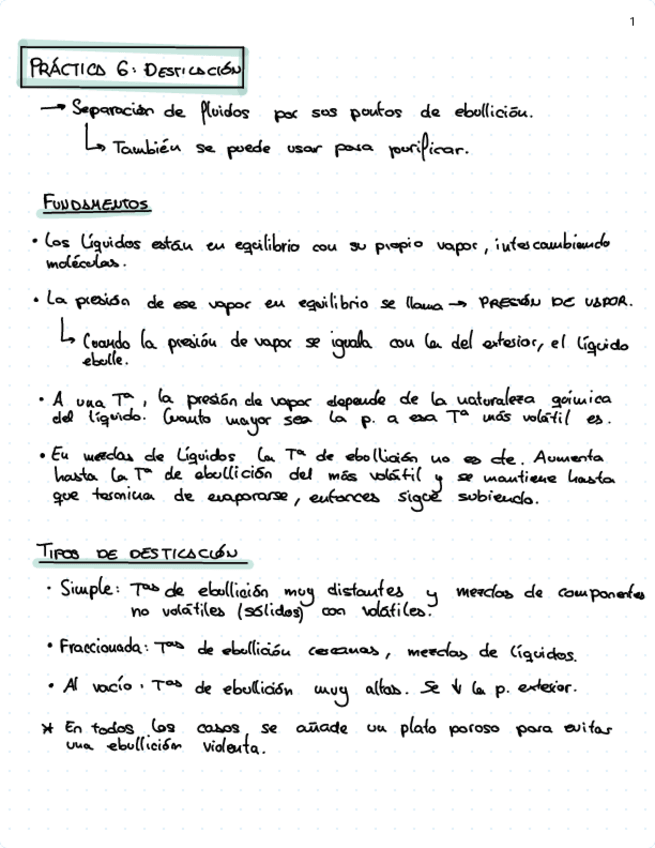 1
PRÁCTICA 6: DESTILACIÓN
→ Separación de fluidos por sus puntos de ebullición.
↳ También se puede usar para purificar.
FUNDAMENTOS
• Los líquidos están en equilibrio con su propio vapor, intercambiando
moléculas.
• La presión de ese vapor en equilibrio se llama → PRESIÓN DE VAPOR.
↳ Cuando la presión de vapor se iguala con la del exterior, el líquido
ebulle.
• A una Tª, la presión de vapor depende de la naturaleza química
del líquido. Cuanto mayor sea la p. a esa Tª más volátil es.
• En mezclas de líquidos la Tª de ebollición no es cte. Aumenta
hasta la Tª de ebullición del más volátil y se mantiene hasta
que termina de evaporarse, entonces sigue subiendo.
TIPOS DE DESTILACIÓN
• Simple: Tas de ebullición muy distantes y mezclas de componentes
no volátiles (sólidos) con volátiles.
• Fraccionada: Tas de ebullición cercanas, mezclas de líquidos.
• Al vacío: Tas de ebullición muy altas. Se ↓ la p. exterior.
* En todos los casos se añade un plato poroso para evitar
una ebullición violenta.